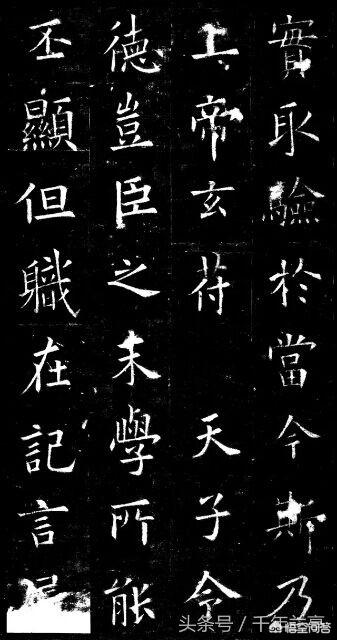 實取驗於當今斯乃
上帝玄苻　天子令
德豈臣之末學所能
丕顯但職在記言
悟空问答
头条号 /